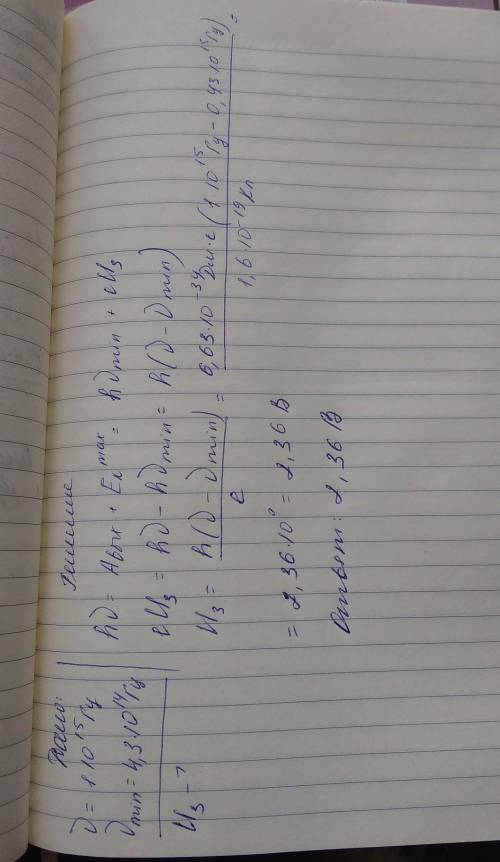 Дано:
ν = 1·10¹⁵ Гц
ν min = 4,3·10¹⁴ Гц
U₃ - ?
Решение
hν = Aвых + Eк max = hν min + eU₃
eU₃ = hν - hν min = h(ν - ν min)
U₃ = h(ν - ν min) / e = 6,63·10⁻³⁴ Дж·с (1·10¹⁵ Гц - 0,43·10¹⁵ Гц) / 1,6·10⁻¹⁹ Кл =
= 2,36·10⁰ = 2,36 В
Ответ: 2,36 В